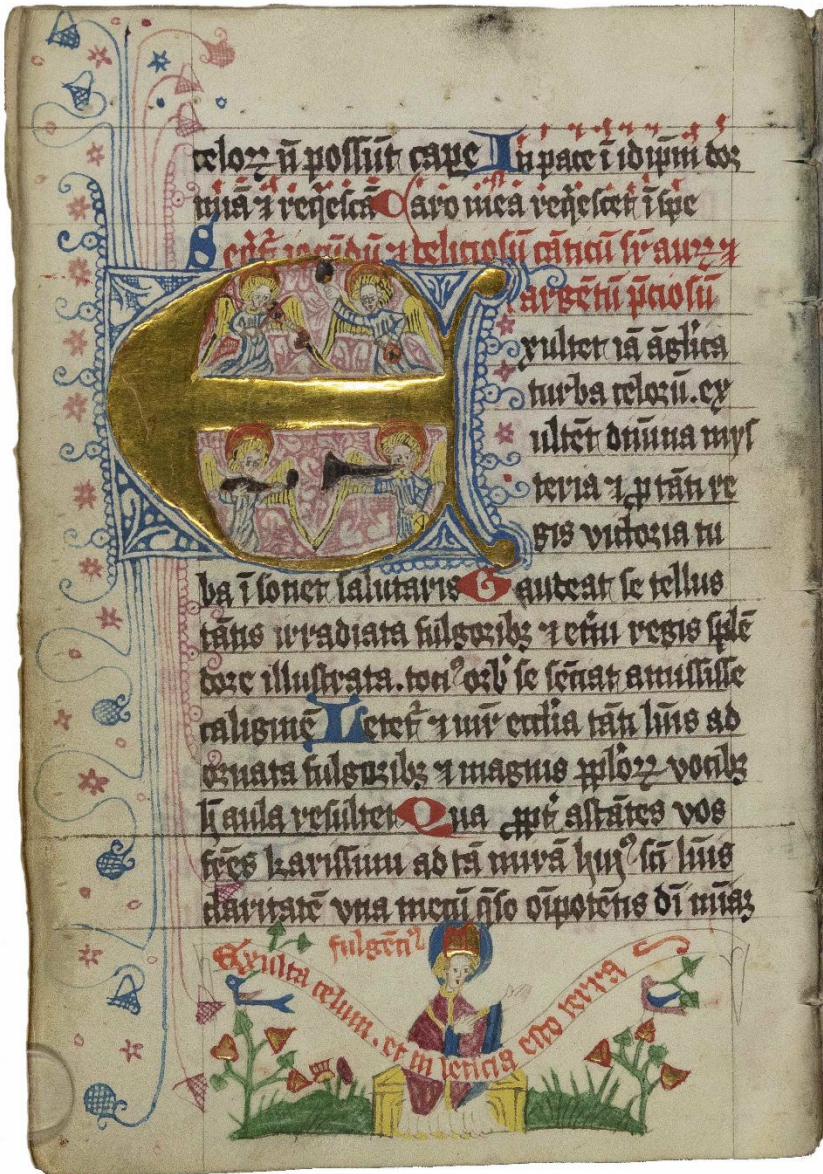 celoꝝ n̄ possūt cape In pace ī idip̄m dor
miā ⁊ reqͥescā Caro mea reqͥescet ī spe
Seqͥt͛ iocūdū ⁊ deliciosū cāticū sr̄ auꝝ ⁊
argētū p̄ciosū
Exultet iā āglica
turba celoꝝ. ex
ultēt diuina mys
teria ⁊ ꝓ tāti re
gis victoria tu
ba ī sonet salutaris Gaudeat se tellus
tātis irradiata fulgoribꝫ ⁊ et̄ni regis splē
dore illustrata. tociꝰ orbͥ se sēciat amisisse
caliginē Letet͛ ⁊ mr̄ ecclīa tāti lūis ad
ornata fulgoribꝫ ⁊ magnis pplōꝝ vocibꝫ
h̄ aula resultet Qua ꝓpt͛ astātes vos
frēs karissimi ad tā mirā huiꝰ scī lūis
claritatē vna mecū qͥso oīpotētis dī mīaꝫ
fulgēciꝰ
Exulta celum. et in leticia esto terra